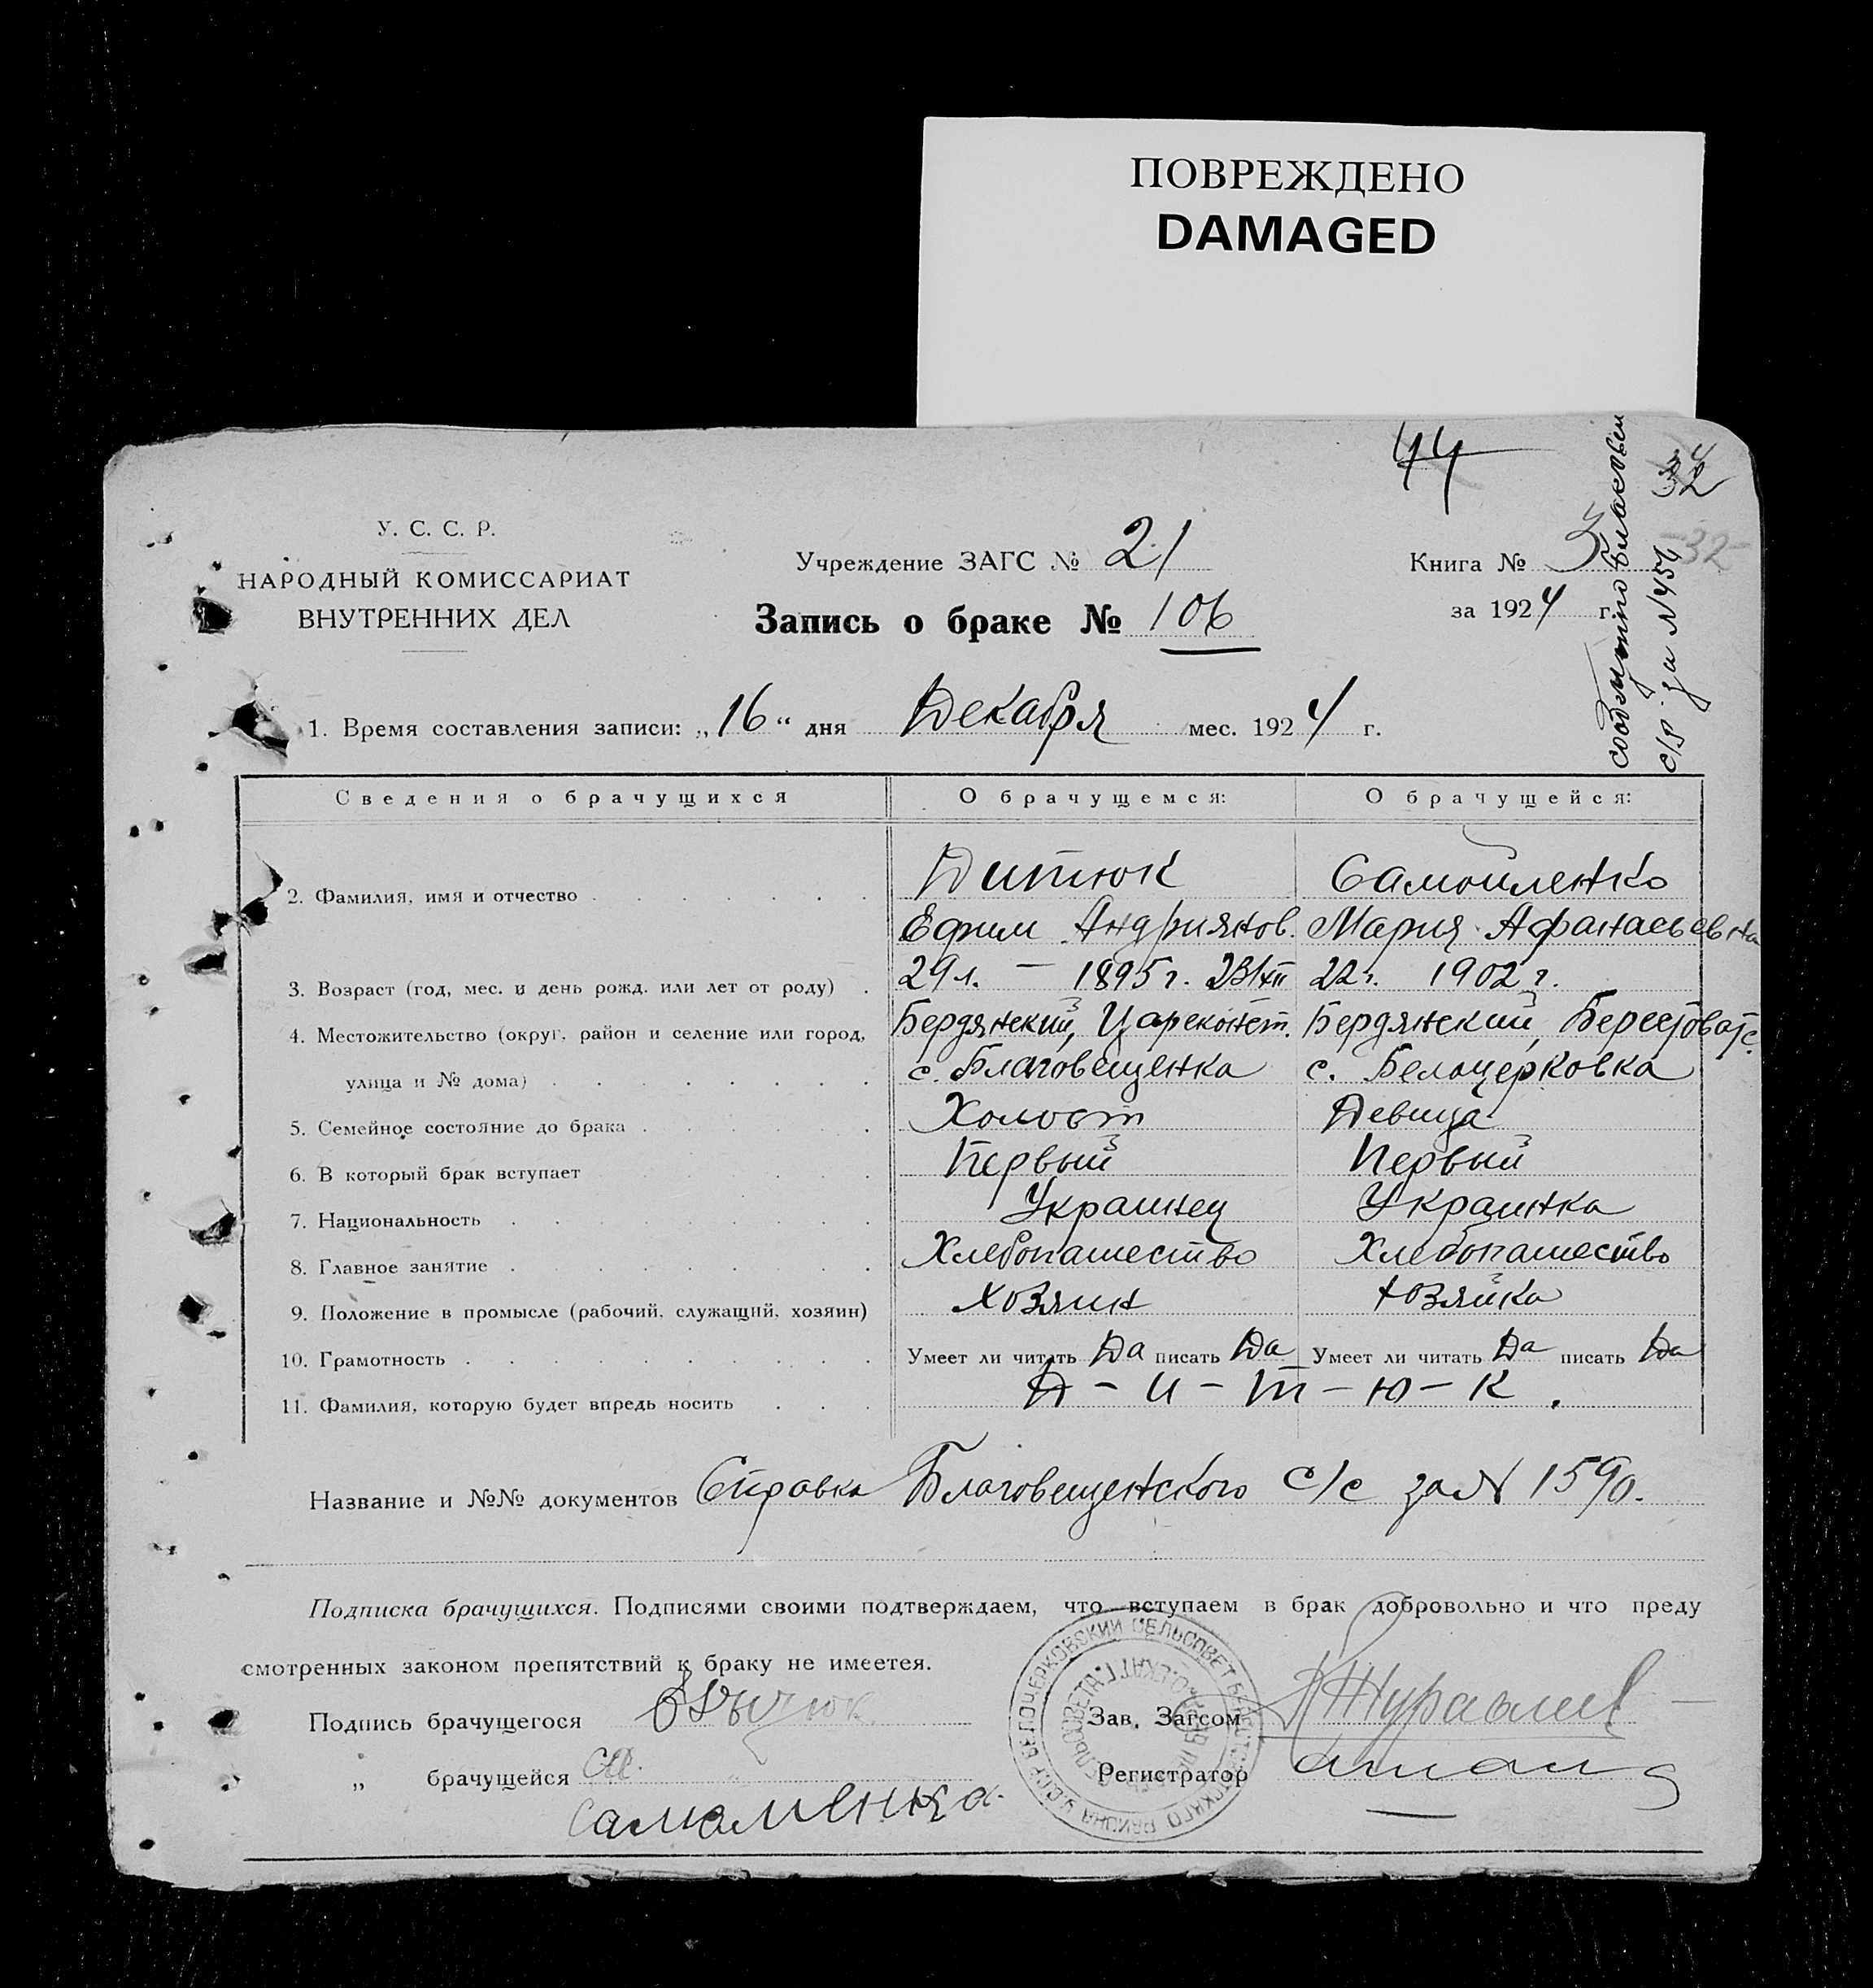 ПОВРЕЖДЕНО
DAMAGED
44
32
32
сообщено
с/р за № 456
У. С. С. Р.
НАРОДНЫЙ КОМИССАРИАТ
ВНУТРЕННИХ ДЕЛ
Учреждение ЗАГС № 21
Книга № 3
Запись о браке № 106
за 1924 г.
1. Время составления записи: „16“ дня Декабря мес. 1924 г.
Сведения о брачущихся О брачущемся: О брачущейся:
2. Фамилия, имя и отчество Дитюк Самойленко
Ефим Андриянов. Мария Афанасьевна
3. Возраст (год, мес. и день рожд. или лет от роду) 29 л. — 1895 г. 23/XII 22 г. 1902 г.
4. Местожительство (округ, район и селение или город, Бердянский, Цареконст. Бердянский, Берестоватс.
улица и № дома) с. Благовещенка с. Белоцерковка
5. Семейное состояние до брака Холост Девица
6. В который брак вступает Первый Первый
7. Национальность Украинец Украинка
8. Главное занятие Хлебопашество Хлебопашество
9. Положение в промысле (рабочий, служащий, хозяин) Хозяин Хозяйка
10. Грамотность Умеет ли читать Да писать Да Умеет ли читать Да писать Да
11. Фамилия, которую будет впредь носить Д - и - т - ю - к.
Название и №№ документов Справка Благовещенского с/с за № 1590.
Подписка брачущихся. Подписями своими подтверждаем, что вступаем в брак добровольно и что преду
смотренных законом препятствий к браку не имеется.
Подпись брачущегося
Зав. Загсом Журавлев
„ брачущейся
Регистратор
БЕЛОЦЕРКОВСКИЙ СЕЛЬСОВЕТ